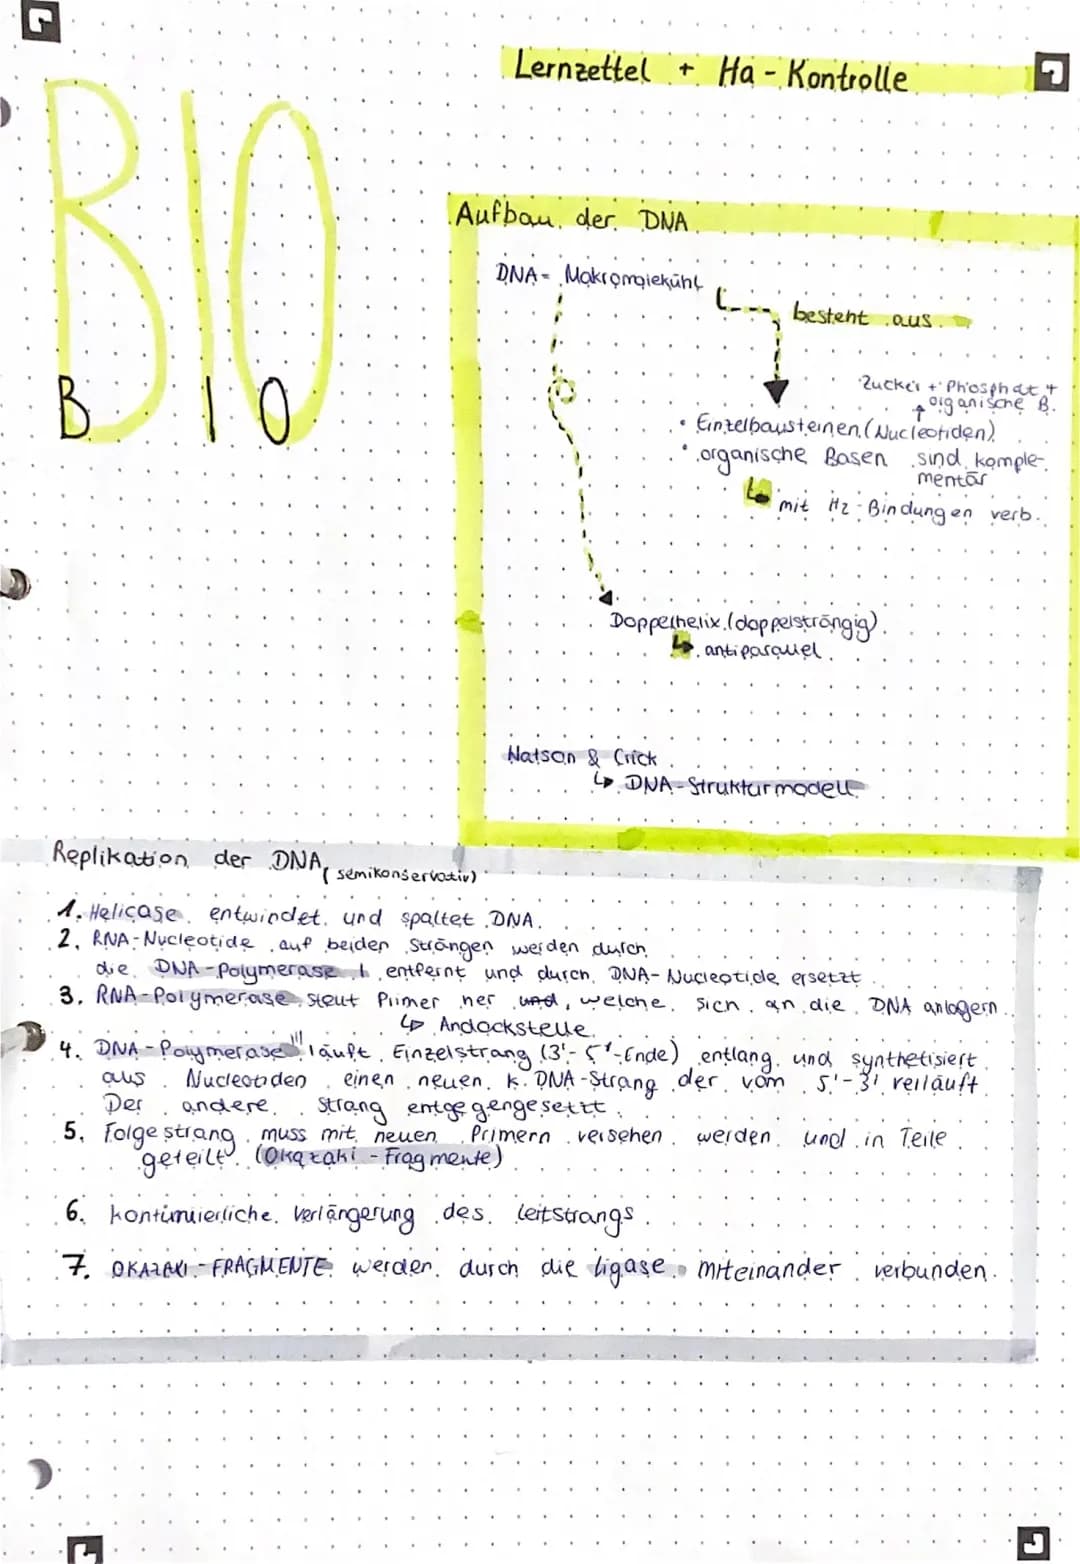 Lernzettel + Ha-Kontrolle
BIO
B I O
Aufbau der DNA
DNA = Makromolekühl
besteht aus
Zucker + Phosphat +
organische B.
• Einzelbausteinen (Nucleotiden)
• organische Basen sind komple-
mentär
↳ mit H2-Bindungen verb.
Doppelhelix (doppelsträngig)
↳ antiparallel
Watson & Crick
↳ DNA-Strukturmodell
Replikation der DNA (semikonservativ)
1. Helicase entwindet und spaltet DNA.
2. RNA-Nucleotide auf beiden Strängen werden durch
die DNA-Polymerase I entfernt und durch DNA-Nucleotide ersetzt
3. RNA-Polymerase stellt Primer her und, welche sich an die DNA anlagern.
↳ Andockstelle
4. DNA-Polymerase III läuft Einzelstrang (3'-5'-Ende) entlang und synthetisiert
aus Nucleotiden einen neuen k. DNA-Strang der vom 5'-3' verläuft.
Der andere Strang entgegengesetzt.
5. Folgestrang muss mit neuen Primern versehen werden und in Teile
geteilt. (Okazaki-Fragmente)
6. kontinuierliche Verlängerung des Leitstrangs.
7. OKAZAKI-FRAGMENTE werden durch die Ligase miteinander verbunden.